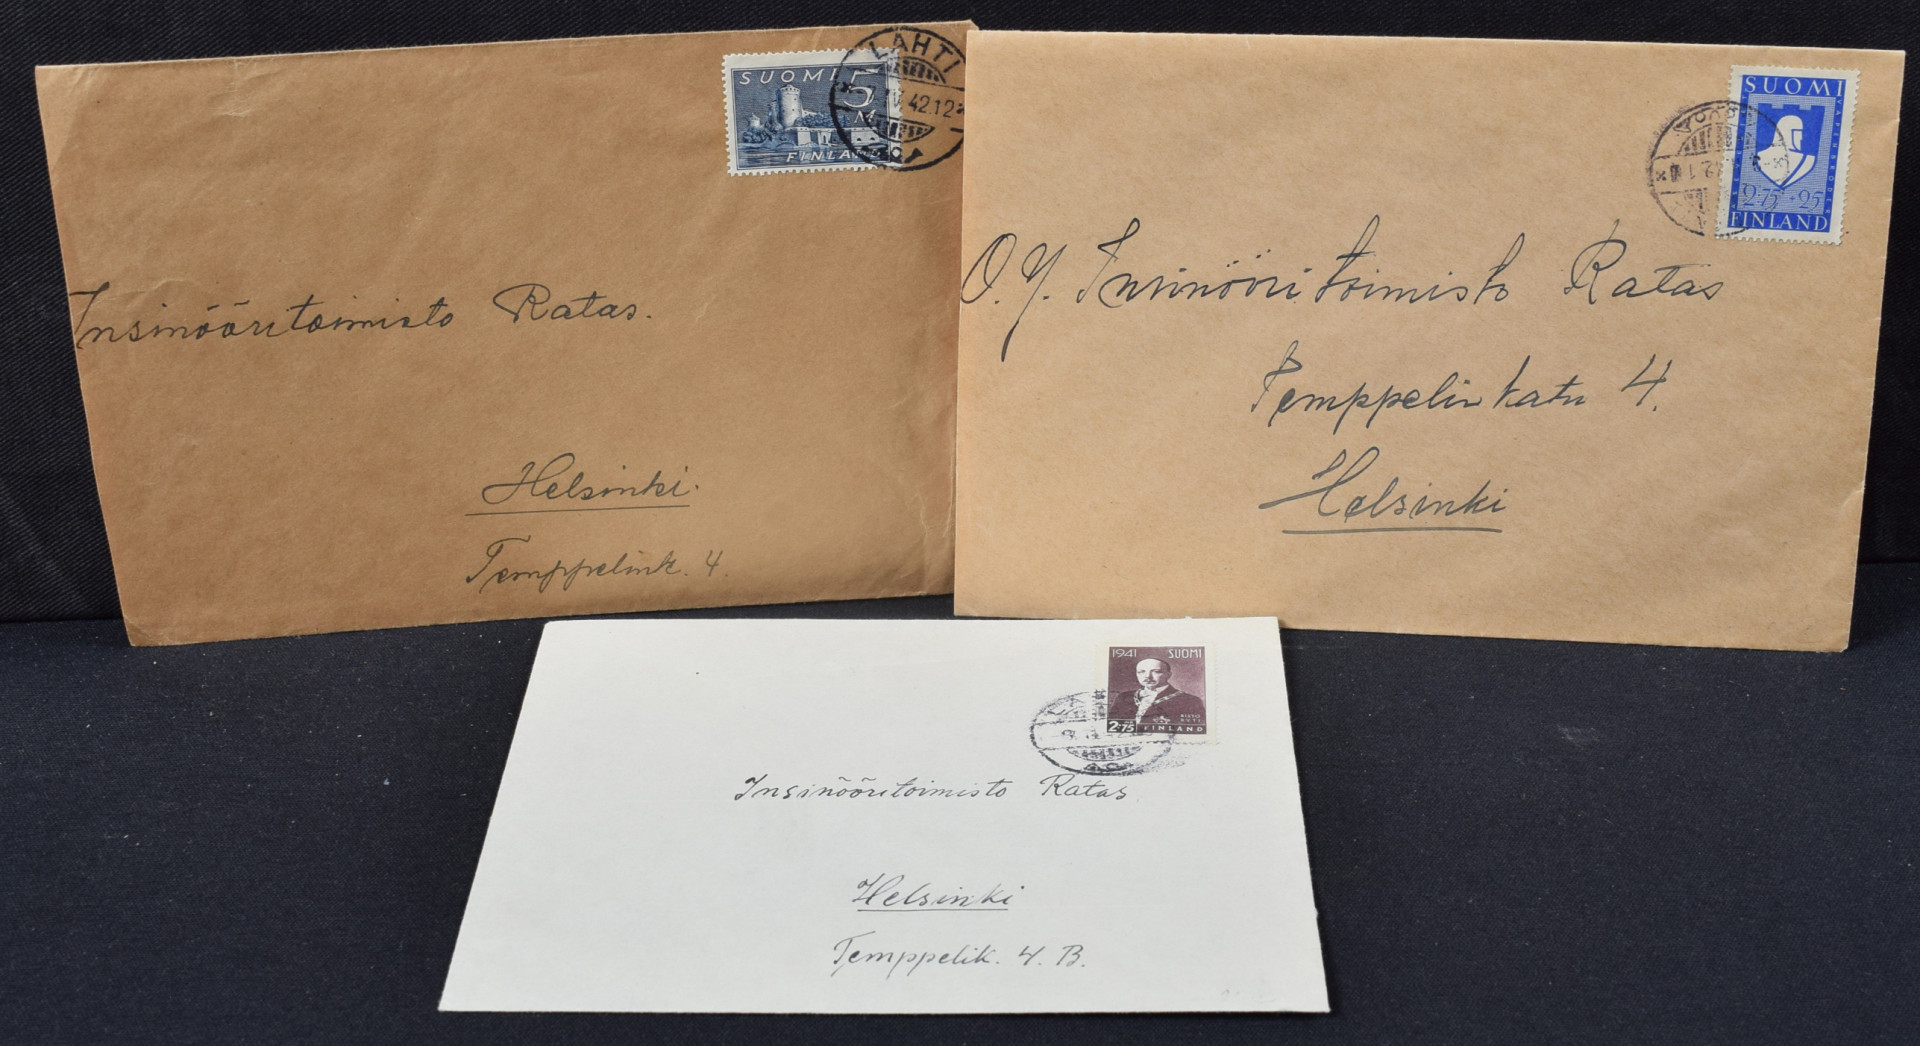 SUOMI 5
M
FINLA
LAHTI
IV. 42.12
Insinööritoimisto Ratas.
Helsinki.
Temppelink. 4.
SUOMI
2·75+25
FINLAND
O.Y. Insinööritoimisto Ratas
Temppelinkatu 4.
Helsinki
1941 SUOMI
RISTO
RYTI
2·75 FINLAND
Insinööritoimisto Ratas
Helsinki
Temppelik. 4. B.